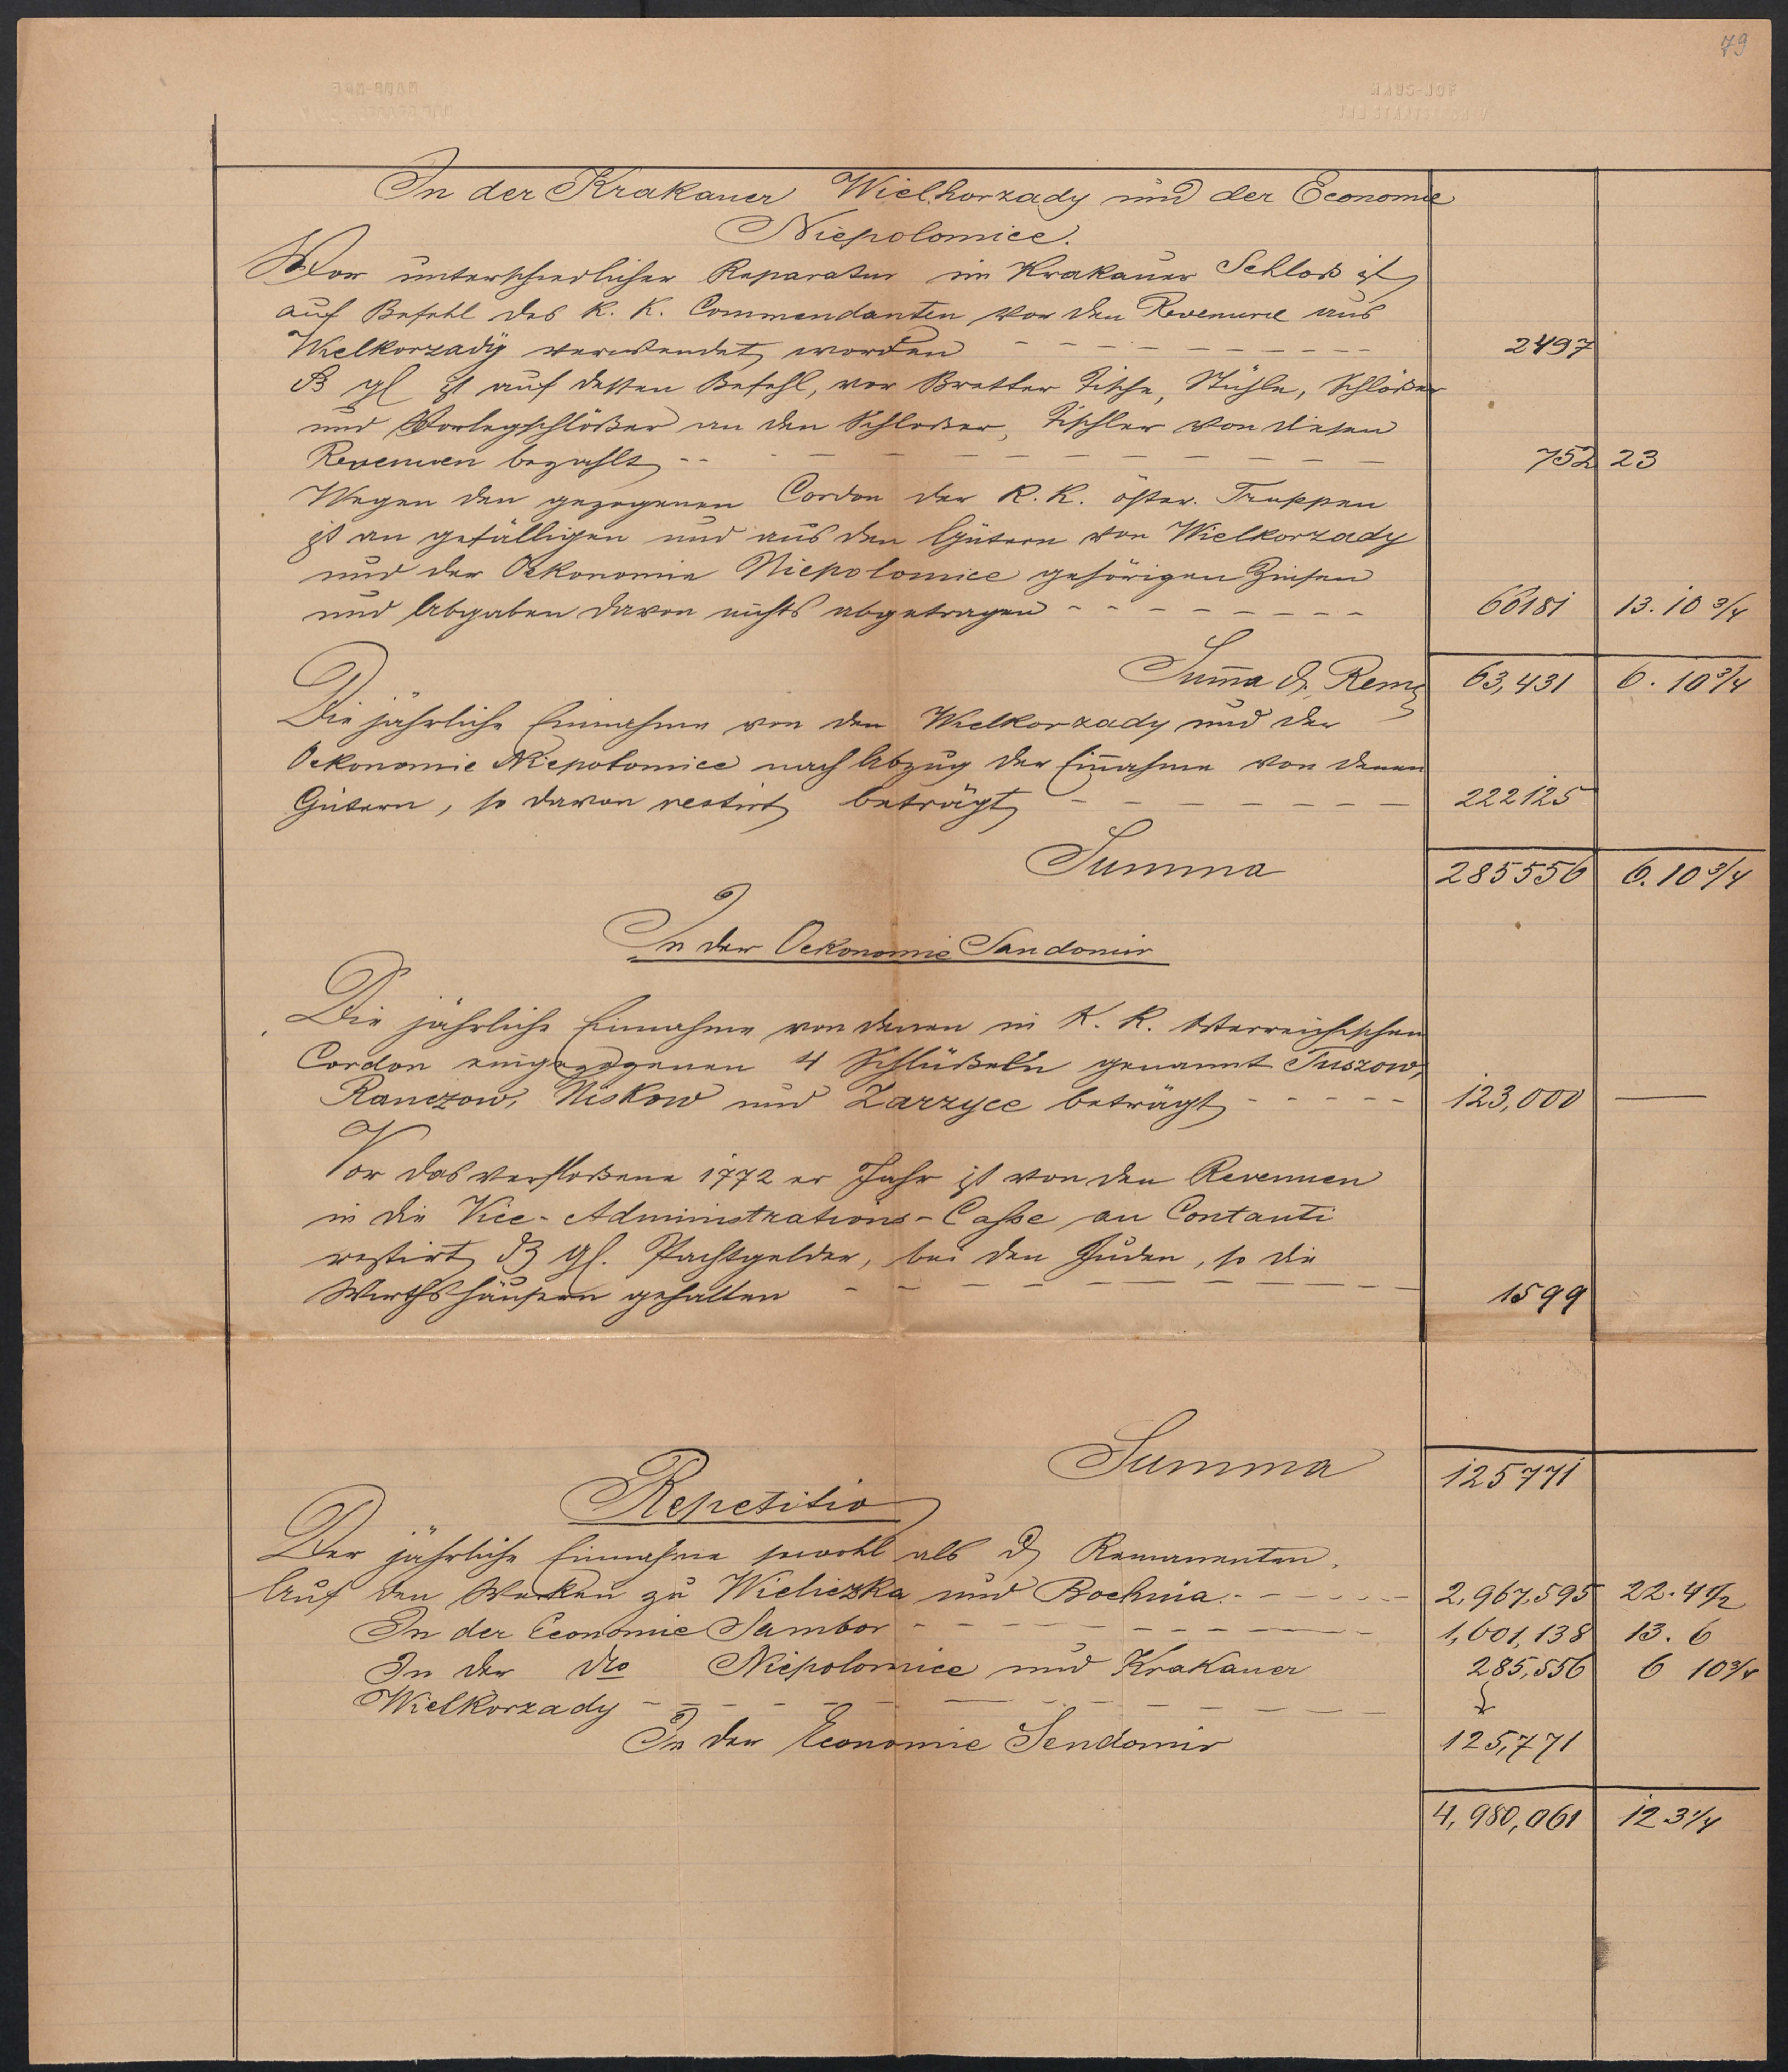 79
HAUS-HOF
In der Krakauer Wielhorzady und der Economie
Niepolomice.
Vor unterschiedlicher Reparatur im Krakauer Schloß ist
auf Befehl des K. K. Commendanten von den Revenue aus
Wielkorzadÿ verwendet worden 2497
ist auf dessen Befehl, vor Bretter Tische, Stühle, Schlößer
und Vorlegschlößer an den Schloßer, Tischler von diesen
Revenuen bezahlt 752 23
Wegen den gezogenen Cordon der K. K. öster. Truppen
ist an gefälligen und aus den Gütern von Wielkorzady
und der Oekonomie Niepolomice gehörigen Zinsen
und Abgaben davon nichts abgetragen 60181 13. 10 3/4
Suma d. Rem 63,431 6. 10 3/4
Die jährliche Einnahme von den Wielkorzady und der
Oekonomie Niepolomice nach Abzug der Einahme von denen
Gütern, so davon restirt beträgt 222125
Summa 285556 6. 10 3/4
In der Oekonomie Sandomir
Die jährliche Einnahme von denen in K. K. österreichischen
Cordon eingezogenen 4 Schlüßeln genannt Tuszow,
Ranczow, Niskow und Zarzyce beträgt 123,000 —
Vor das verfloßene 1772 er Jahr ist von den Revenuen
in die Vice-Administrations-Casse an Contanti
restirt Pachtgelder, bei den Juden, so die
Wirthshäusern gehalten 1599
Summa 125771
Repetitio
Der jährliche Einnahme sowohl als d Remanenten.
Auf den Werken zu Wieliczka und Bochnia. 2,967,595 22. 4 1/2
In der Economie Sambor 1,601,138 13. 6
In der dto Niepolomice und Krakauer 285,556 6 10 3/4
Wielkorzady
In der Economie Sendomir 125,771
4,980,061 12 3 1/4